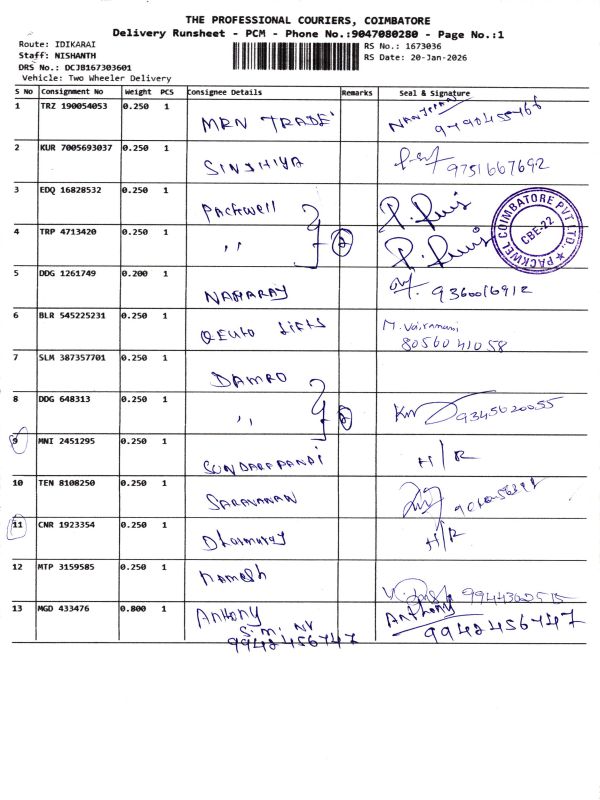 THE PROFESSIONAL COURIERS, COIMBATORE
Delivery Runsheet - PCM - Phone No.:9047080280 - Page No.:1
Route: IDIKARAI
RS No.: 1673036
Staff: NISHANTH
RS Date: 20-Jan-2026
DRS No.: DCJB167303601
Vehicle: Two Wheeler Delivery
S No Consignment No Weight PCS Consignee Details Remarks Seal & Signature
1 TRZ 190054053 0.250 1 MRN TRADE
2 KUR 7005693037 0.250 1 SINJHIYA 9751667692
3 EDQ 16828532 0.250 1 Packwell
4 TRP 4713420 0.250 1 ,, 2
PACKWEL COIMBATORE PVT LTD., CBE-22
5 DDG 1261749 0.200 1 NAMARAJ 9360016912
6 BLR 545225231 0.250 1 Lifts M. Vairamani
8056041058
7 SLM 387357701 0.250 1 DAMRO
8 DDG 648313 0.250 1 ,, 2 9345620055
9 MNI 2451295 0.250 1 SUNDARPANDI H/R
10 TEN 8108250 0.250 1 SARAVANAN
11 CNR 1923354 0.250 1 Dharmaraj H/R
12 MTP 3159585 0.250 1 Ramesh
13 MGD 433476 0.800 1 Anthony Anthony
S.M. NV
9942456747 9942456747